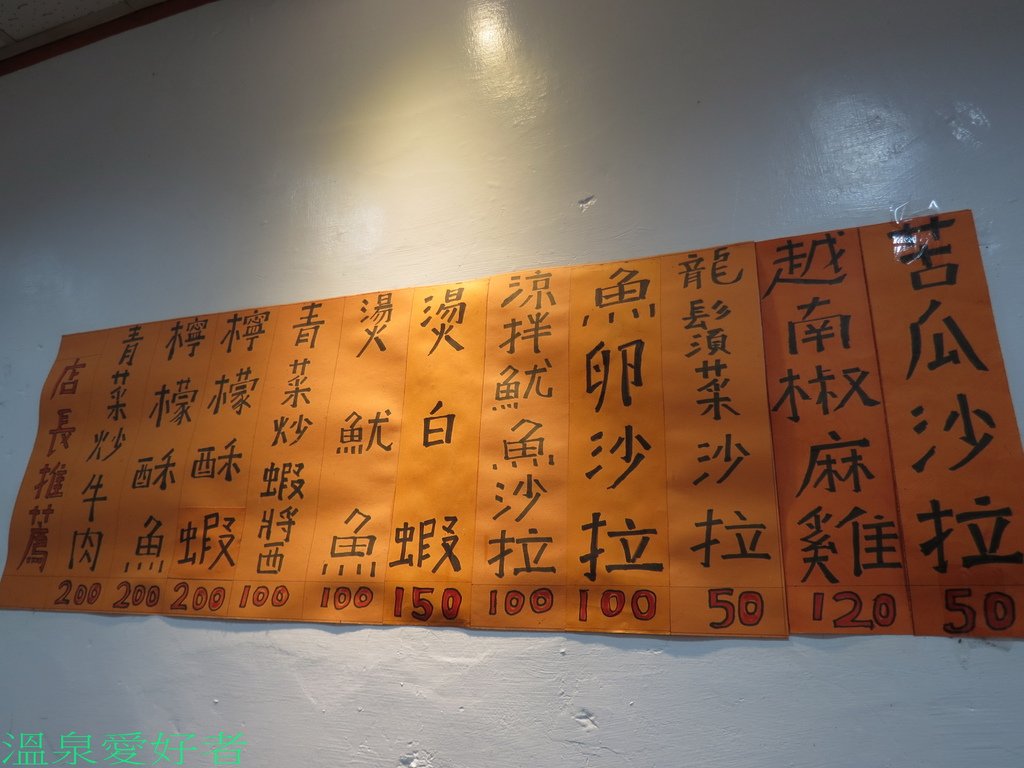 苦瓜沙拉 50
越南椒麻雞 120
龍鬚菜沙拉 50
魚卵沙拉 100
涼拌魷魚沙拉 100
燙白蝦 150
燙魷魚 100
青菜炒蝦醬 100
檸檬酥蝦 200
檸檬酥魚 200
青菜炒牛肉 200
店長推薦
溫泉愛好者